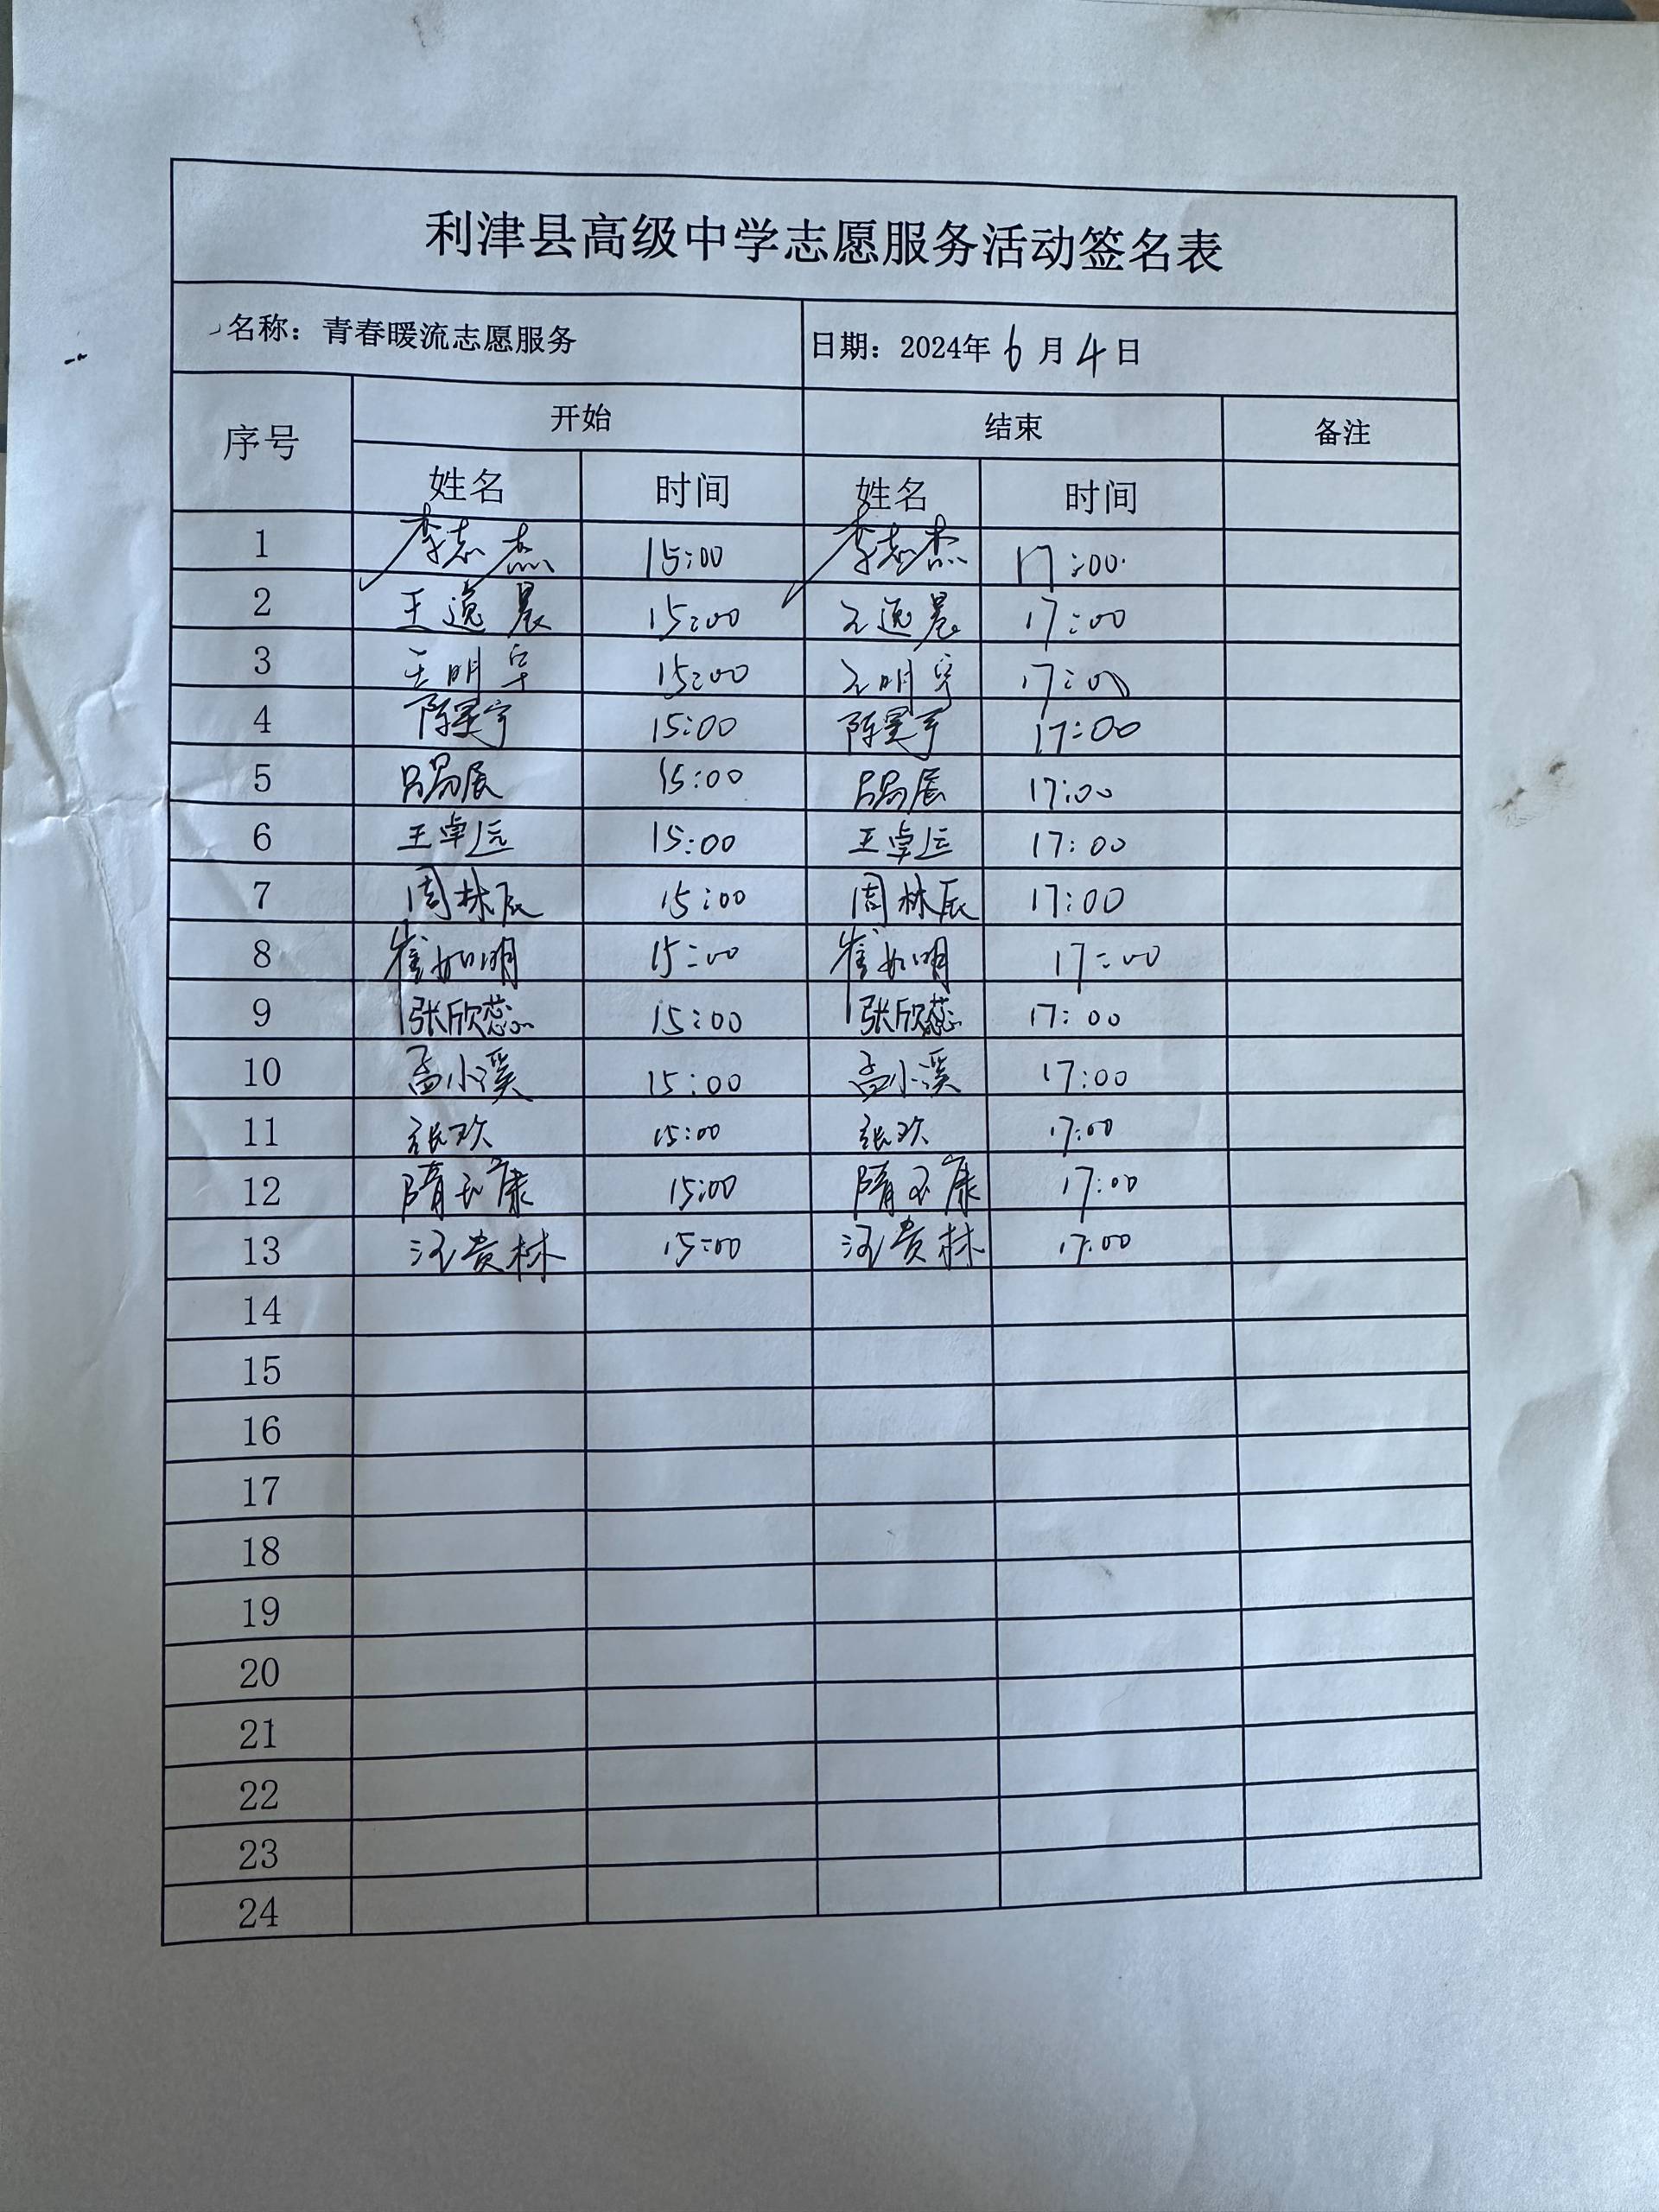 利津县高级中学志愿服务活动签名表
名称：青春暖流志愿服务 日期：2024年 6 月 4 日
序号 开始 结束 备注
姓名 时间 姓名 时间
1 李志杰 15:00 李志杰 17:00
2 王逸晨 15:00 王逸晨 17:00
3 王明宇 15:00 王明宇 17:00
4 陈昊宇 15:00 陈昊宇 17:00
5 吕易展 15:00 吕易展 17:00
6 王卓远 15:00 王卓远 17:00
7 周林辰 15:00 周林辰 17:00
8 崔如明 15:00 崔如明 17:00
9 张欣蕊 15:00 张欣蕊 17:00
10 孟小溪 15:00 孟小溪 17:00
11 张欢 15:00 张欢 17:00
12 隋玉康 15:00 隋玉康 17:00
13 汪贵林 15:00 汪贵林 17:00
14
15
16
17
18
19
20
21
22
23
24